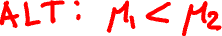 ALT: μ₁ < μ₂